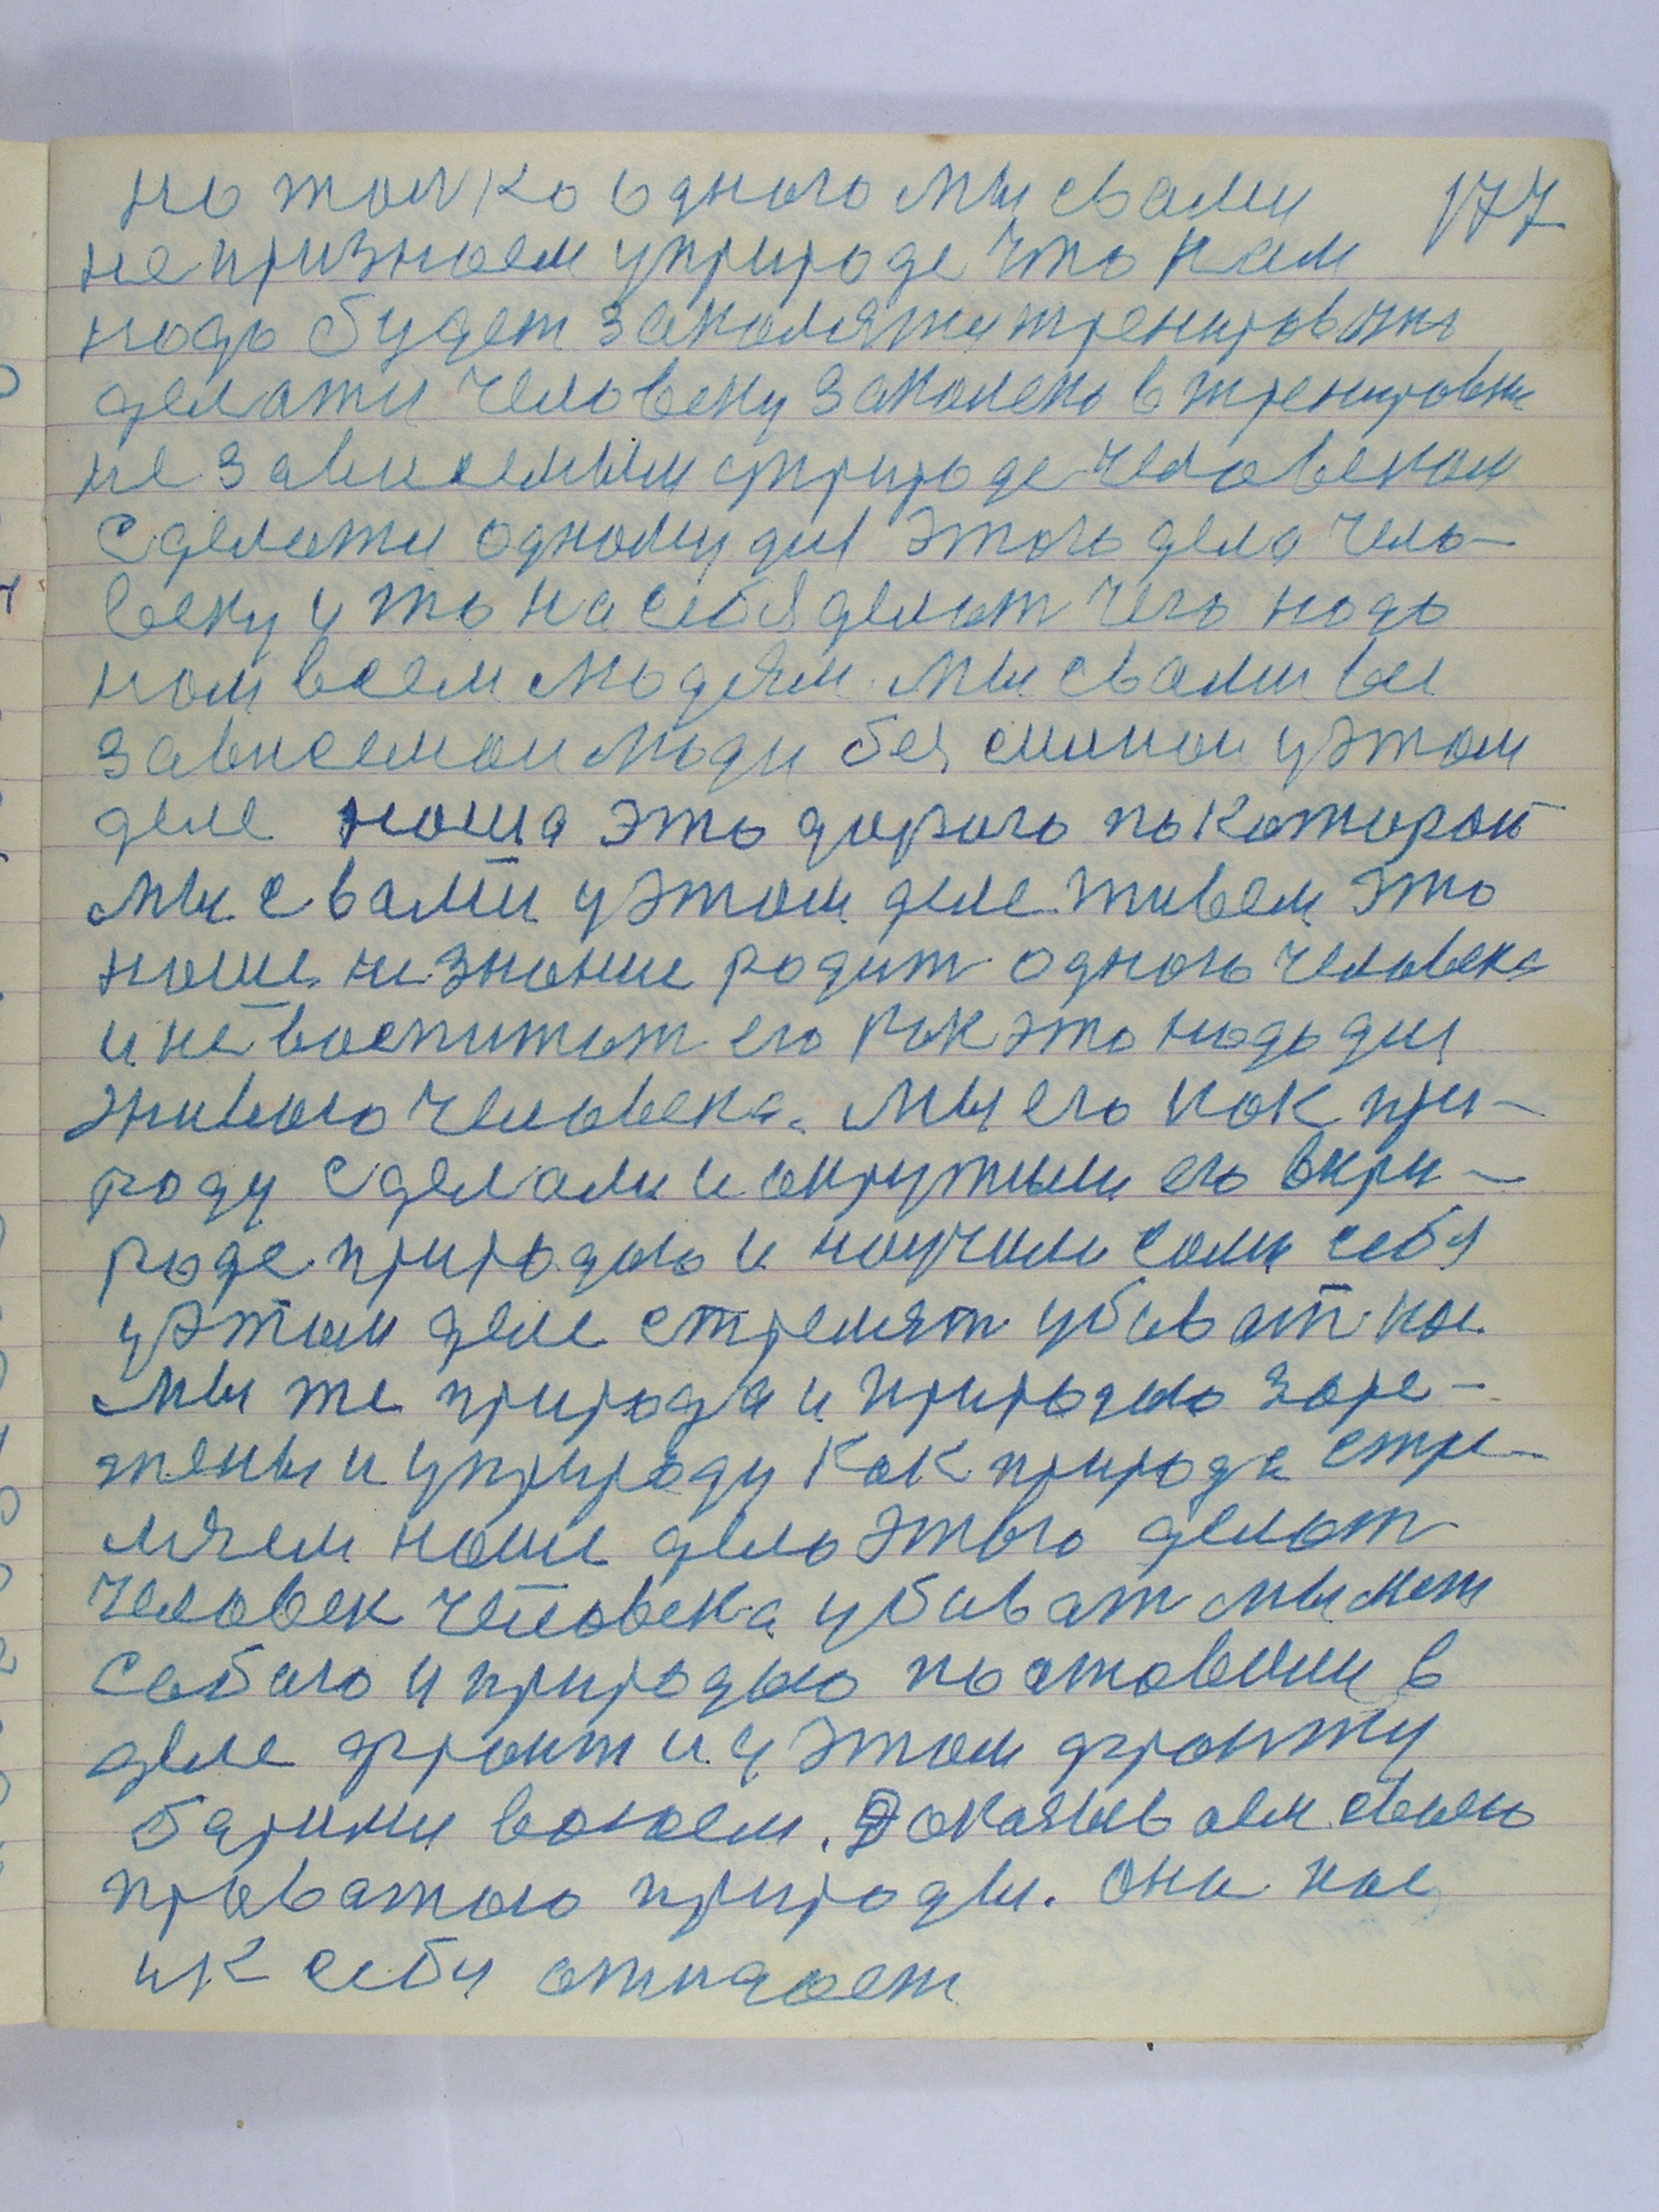 но толко одного мы свами 177
не признаем уприроде что нам
надо будет закаляти тренировка
делати человеку закалено в тренировки
не зависемым природе человеком
сделати одному для этого дела чело-
веку и то на себя делат чего надо
нам всем людям. мы свами все
зависемаи люди без силнои уэтом
деле наша это дорога по которой
мы с вами уэтом деле живем это
наше не знание родит одного человека
и не воспитат его как это надо для
живого человека. мы его как при-
роду сделали и окружили его вкри-
роде природою и научили сами себя
уэтом деле стремят убиват нас.
мы же природа и природою заре-
жены и уприроду как природа стре-
мляем наше дело этого делат
человек человека убиват мы меж
собою и природою поставили в
деле фронт и уэтом фронту
воюем. Доказываем свою
правотою природы. она нас
ик себя